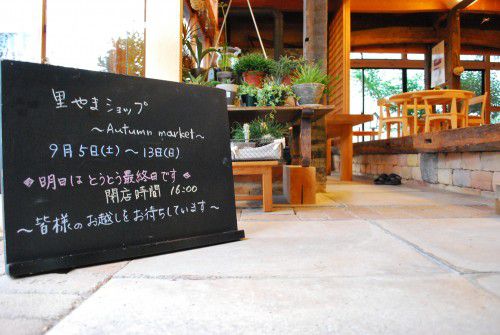 里やまショップ
～Autumn market～
9月5日(土)～13日(日)
◈明日はとうとう最終日です◈
閉店時間 16:00
～皆様のお越しをお待ちしています～